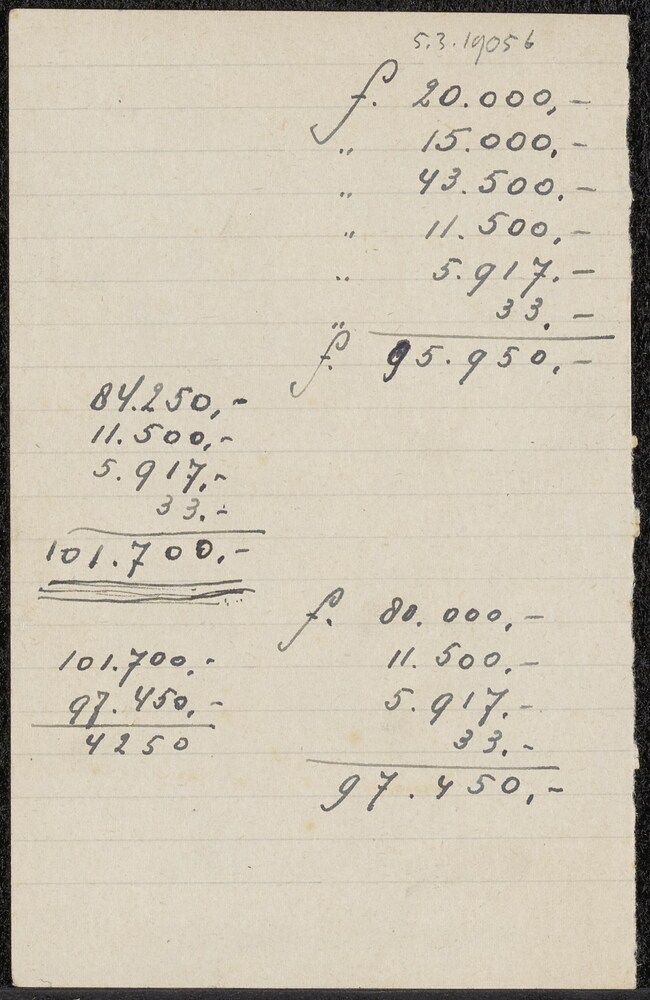 5.3.19056
f. 20.000,-
,, 15.000,-
,, 43.500,-
,, 11.500,-
,, 5.917.-
,, 33.-
f. 95.950,-
84.250,-
11.500,-
5.917,-
33.-
101.700.-
f. 80.000,-
11.500.-
5.917.-
33.-
97.450,-
101.700.-
97.450.-
4250